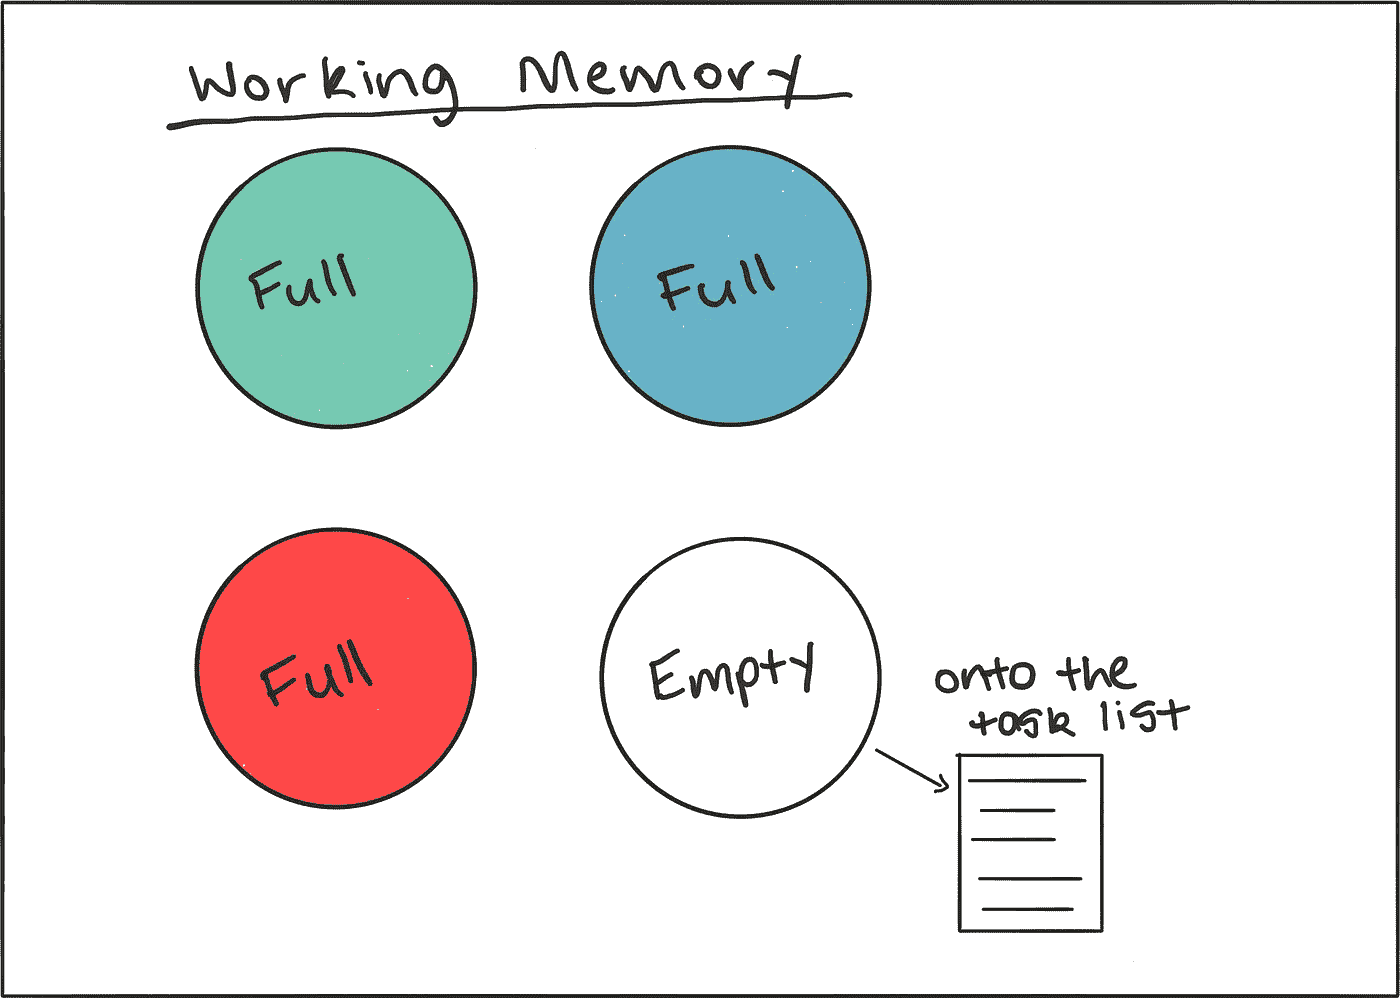 Working Memory
Full
Full
Full
Empty
onto the
task list